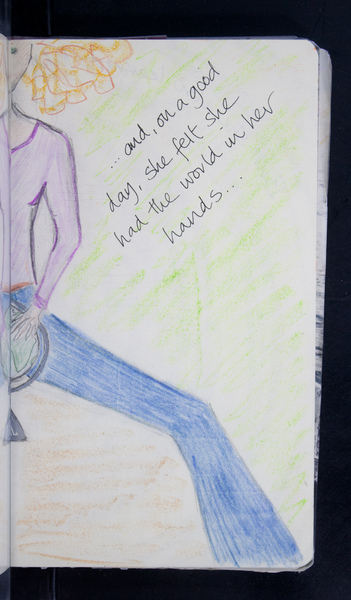 ...and, on a good
day, she felt she
had the world in her
hands...